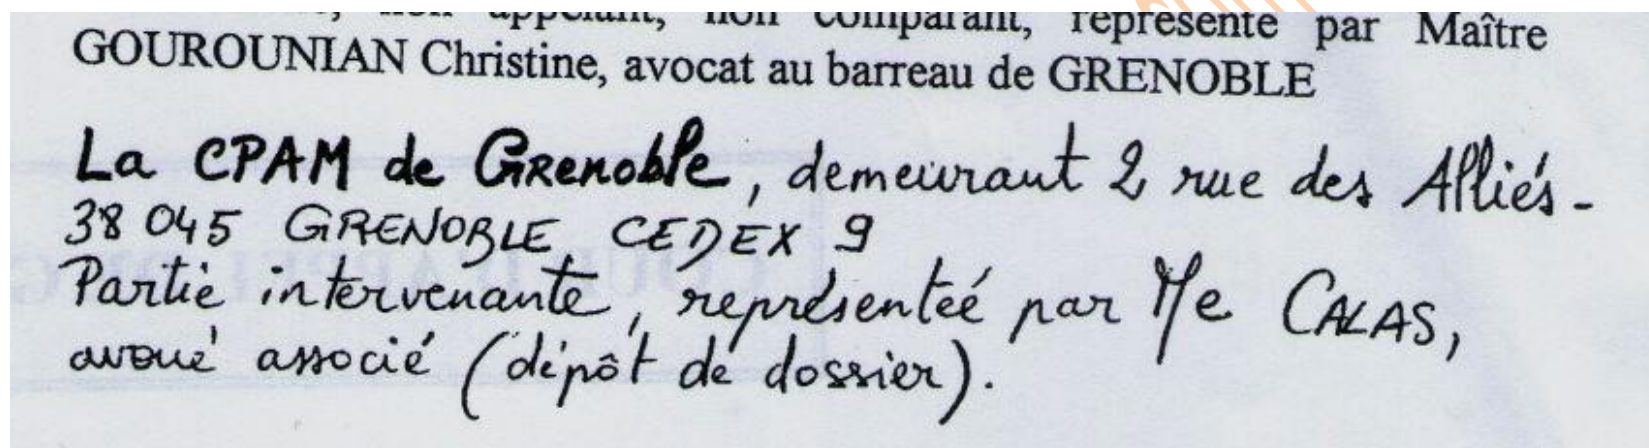 non appelant, non comparant, représenté par Maître
GOUROUNIAN Christine, avocat au barreau de GRENOBLE
La CPAM de Grenoble, demeurant 2 rue des Alliés -
38 045 GRENOBLE CEDEX 9
Partie intervenante, représentée par Me CALAS,
avoué associé (dépôt de dossier).